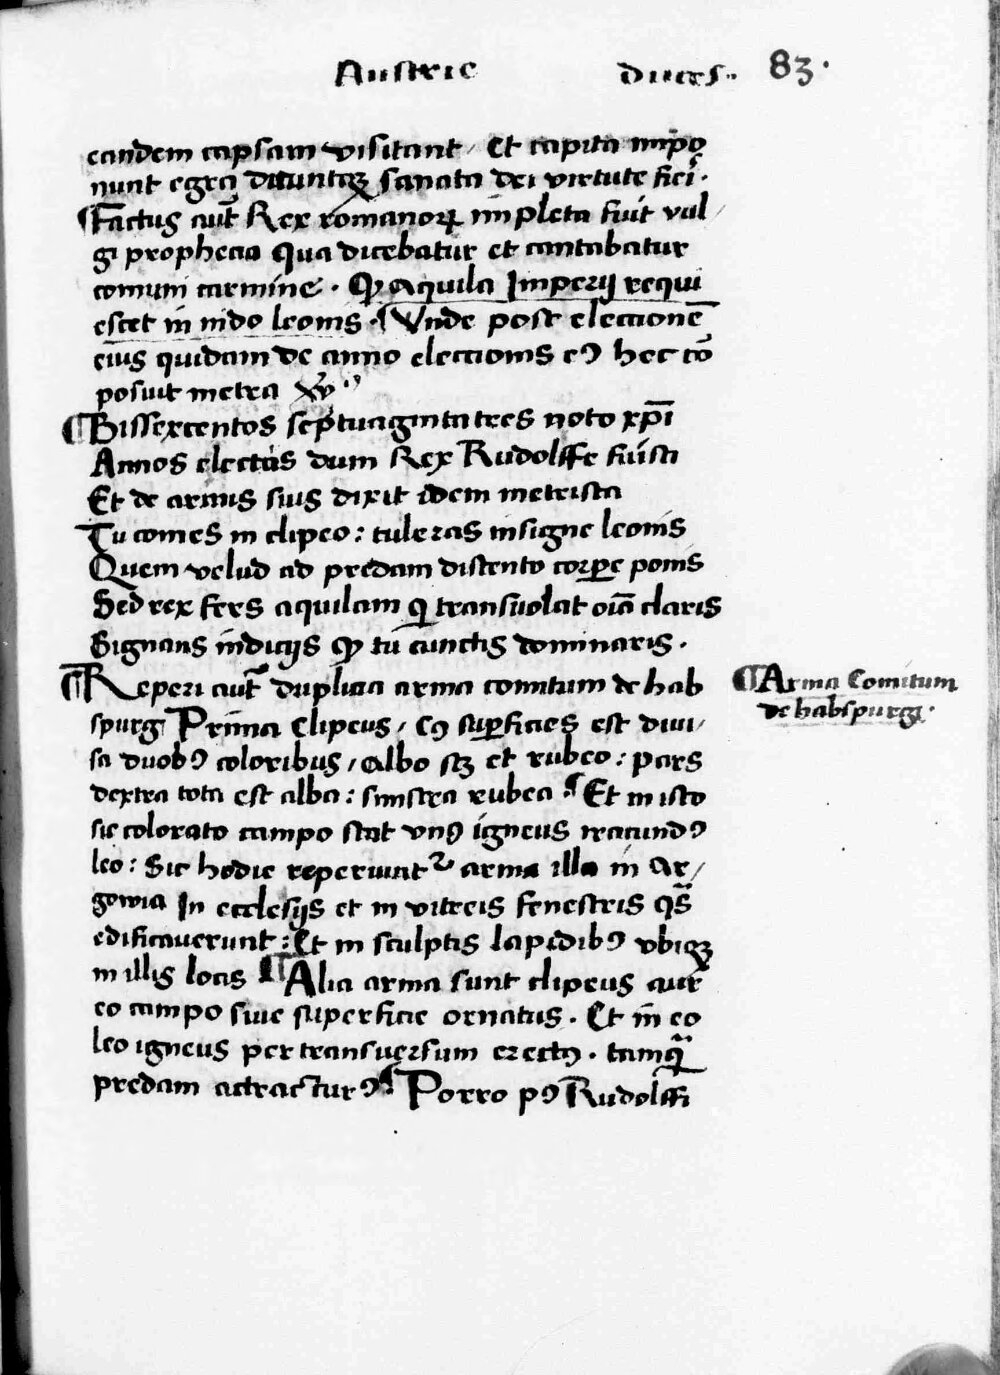 Austrie duces·· 83·
eandem capsam visitant / Et capita impo
nunt egra dicuntqꝫ sanata dei virtute fieri·
¶Factus aut̄ Rex romanorꝝ impleta fuit vul/
gi prophecia Qua dicebatur et cantabatur
comuni carmine · Ꝙ aquila Imperij requi
escet in nido leonis ·¶Vnde post electionē
eius quidam de anno electionis eꝰ hec cō
posuit metra
¶Bissexcentos septuaginta tres noto xp̄i
Annos electus dum Rex Rudolffe fuisti
Et de armis suis dixit idem metrista
Tu comes in clipeo : tuleras insigne leonis
Quem velud ad predam distento corꝑe ponis
Sed rex fers aquilam qi transuolat oīa claris
Signans indicijs ꝙ tu cunctis dominaris ·
¶Reperi aut̄ duplicia arma comitum de hab
spurg Prima Clipeus / Cꝰ suꝑficies est diui/
sa duobꝰ coloribus / albo sꝫ et rubeo : pars
dextra tota est alba : sinistra rubea ¶Et in isto
sic colorato campo stat vnꝰ igneus iracundꝰ
leo : Sic hodie reperiunt᷑ arma illa in Ar/
gowia In ecclesijs et in vitreis fenestris qͣs
edificauerunt : Et in sculptis lapidibꝰ vbiqꝫ
in illis locis ¶Alia arma sunt clipeus aur
eo campo siue superficie ornatus · Et in eo
leo igneus per transuersum erectꝰ · tamqͣ
predam attracturꝰ ¶Porro pꝰ Rudolffi
¶Arma Comitum
de habspurg·